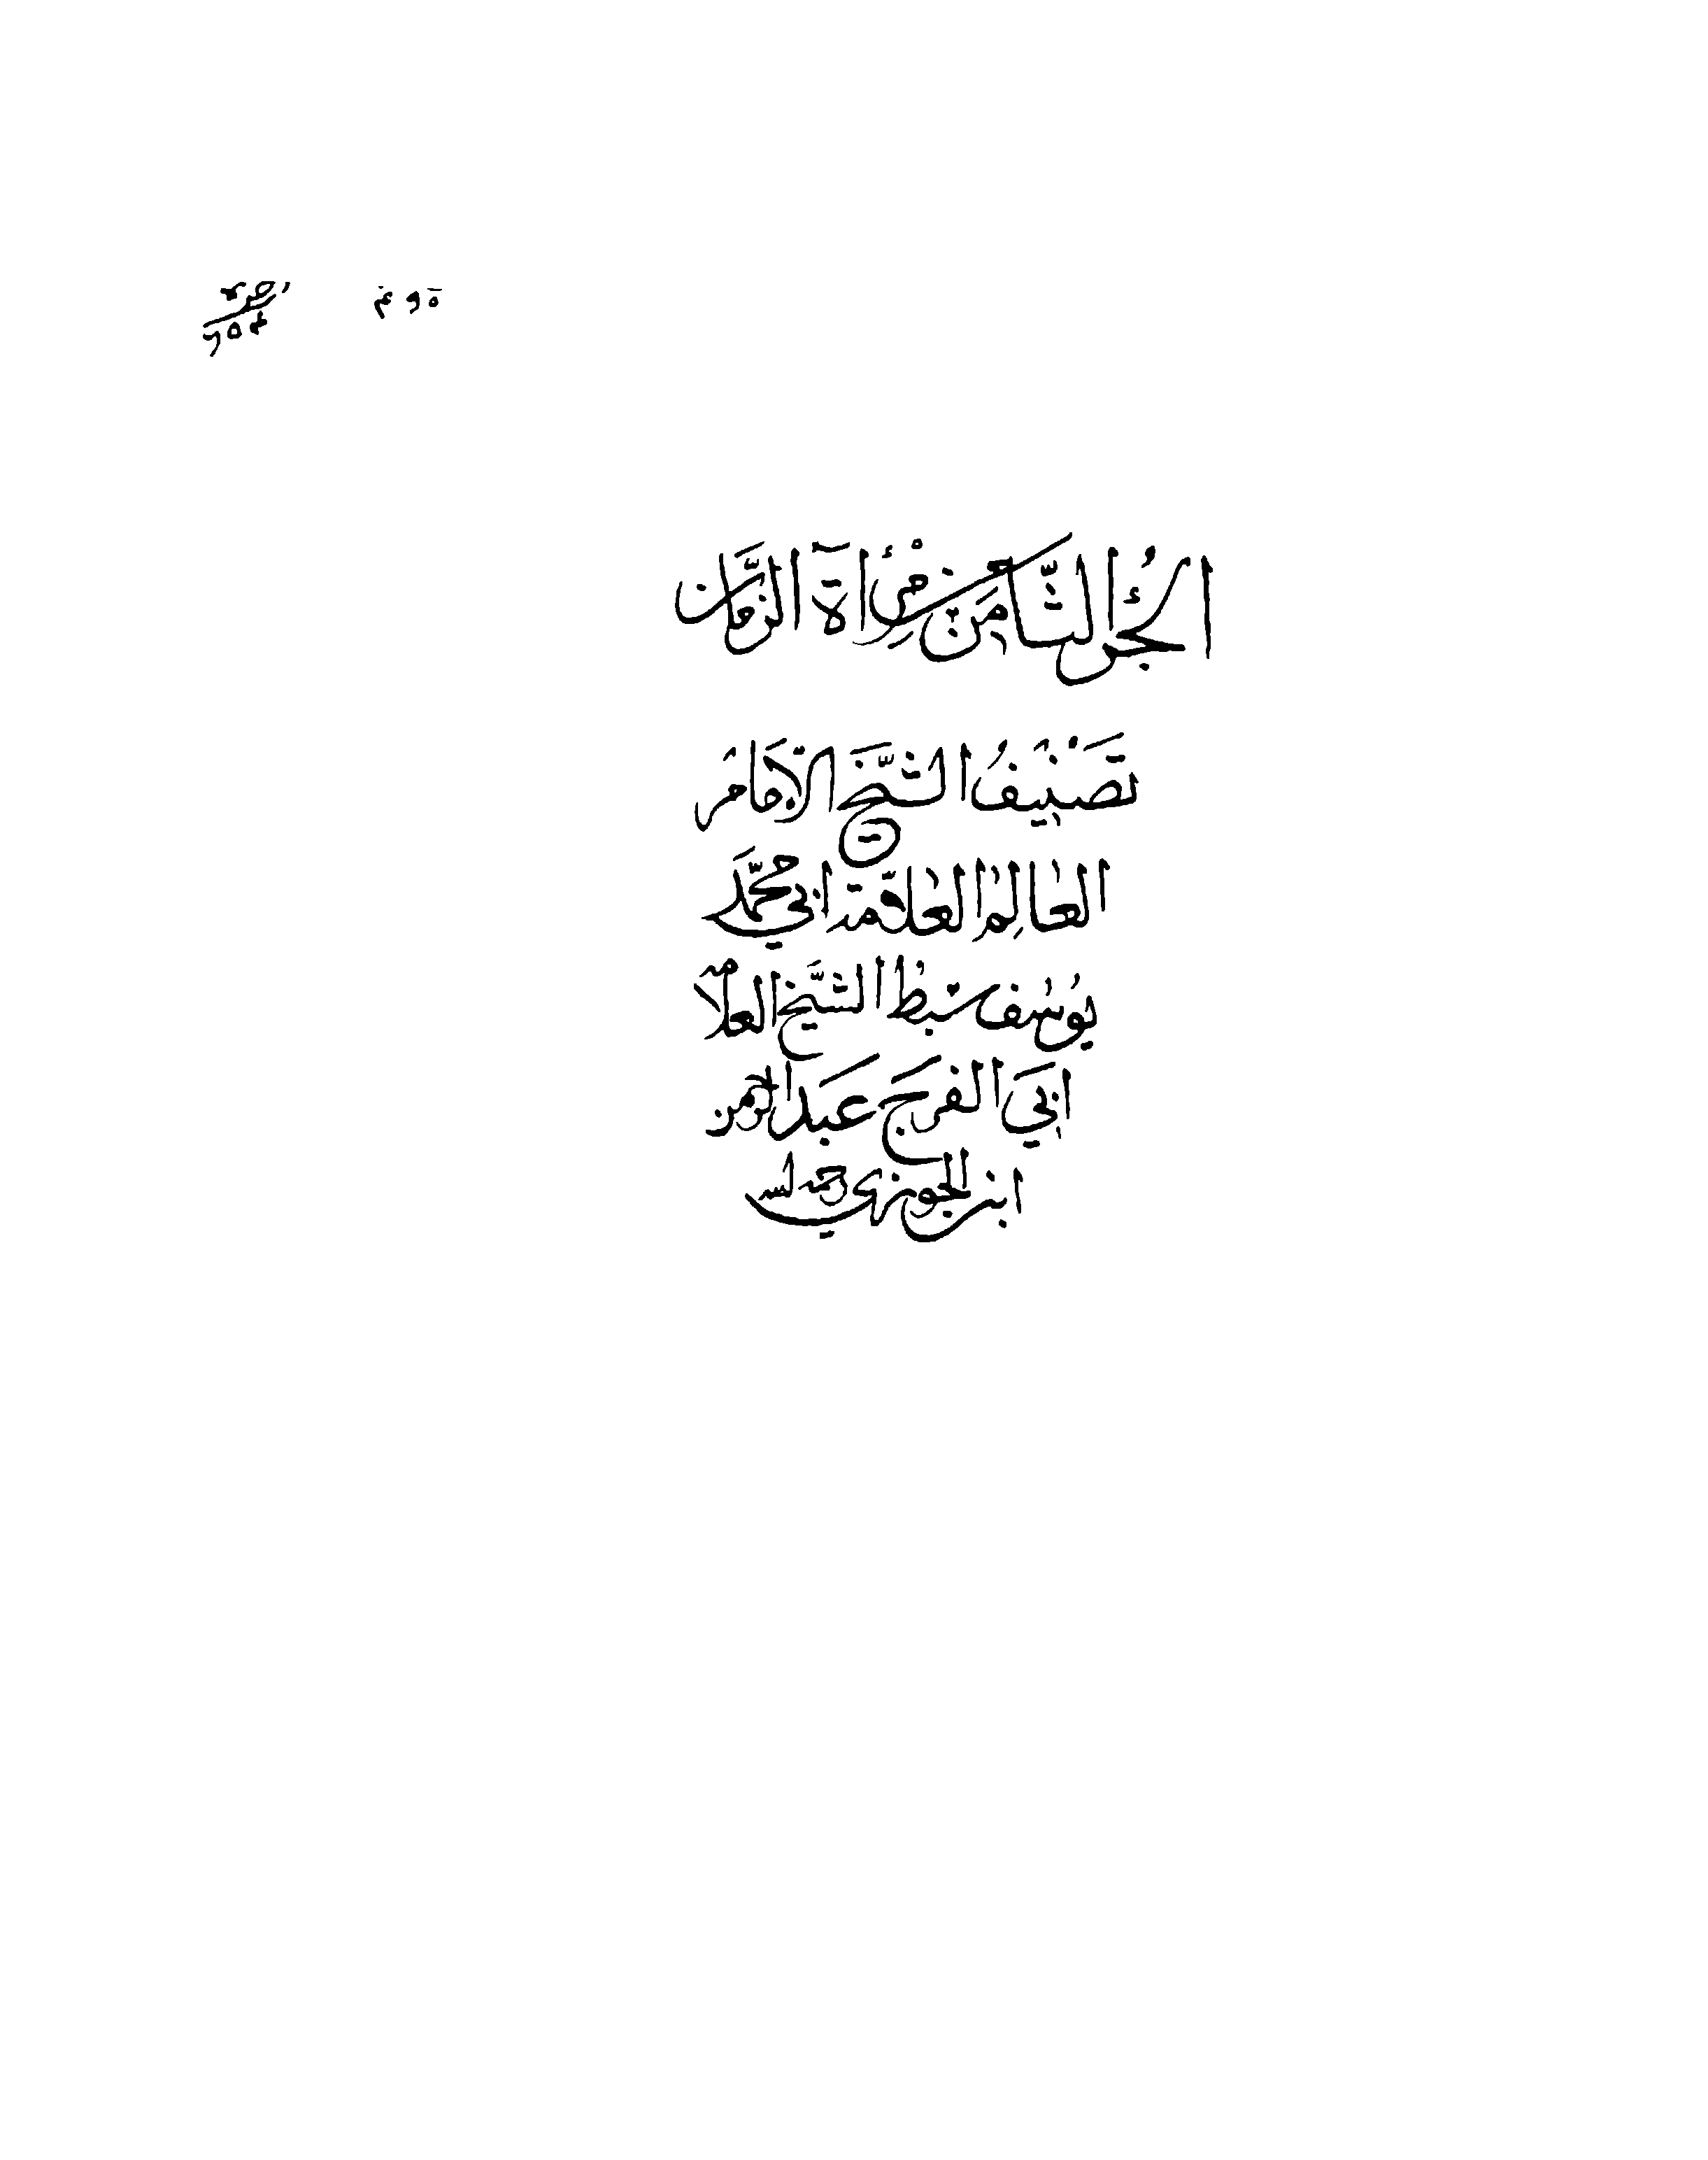 الجُزءُ الثَّامن من مِرْأٓة الزَّمَان
تَصْنِيفُ الشَّيْخ الاِمَامُ
العالِم العلّامة ابي محمَّد
يُوسُف سبط الشَّيخ العلامه
ابي الفرَج عَبد الرحمن
ابن الجوزي رحمه الله